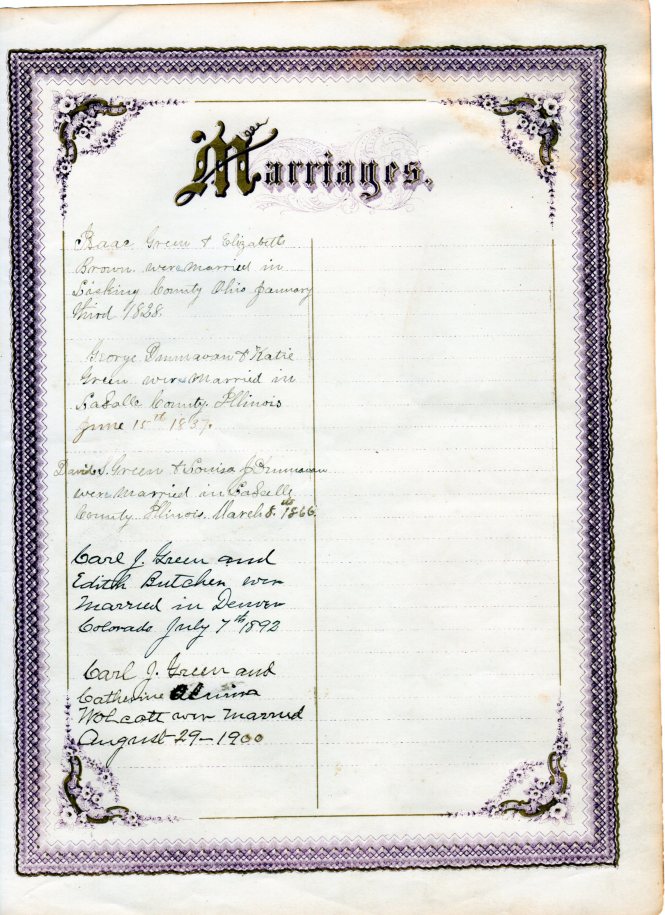 Marriages.
Isaac Green & Elizabeth
Brown were Married in
Licking County Ohio January
third 1828
George Dunnavan & Katie
Green were Married in
LaSalle County Illinois
June 15th 1837.
David S. Green & Louisa J Dunnavan
were Married in LaSalle
County Illinois March 8th 1866
Carl J. Green and
Edith Butcher were
Married in Denver
Colorado July 7th 1892
Carl J. Green and
Catherine
Wolcott were Married
August-29-1900